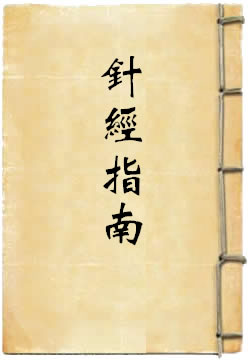 針經指南